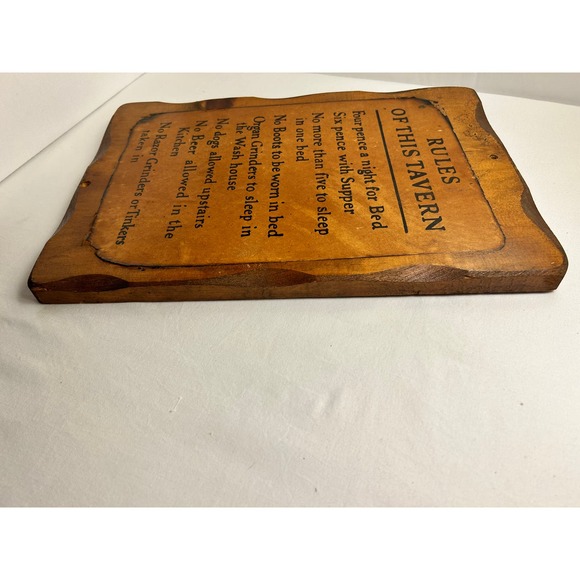 RULES
OF THIS TAVERN
Four pence a night for Bed
Six pence with Supper
No more than five to sleep
in one bed
No Boots to be worn in bed
Organ Grinders to sleep in
the Wash house
No dogs allowed upstairs
No Beer allowed in the
Kitchen
No Razor Grinders or Tinkers
taken in